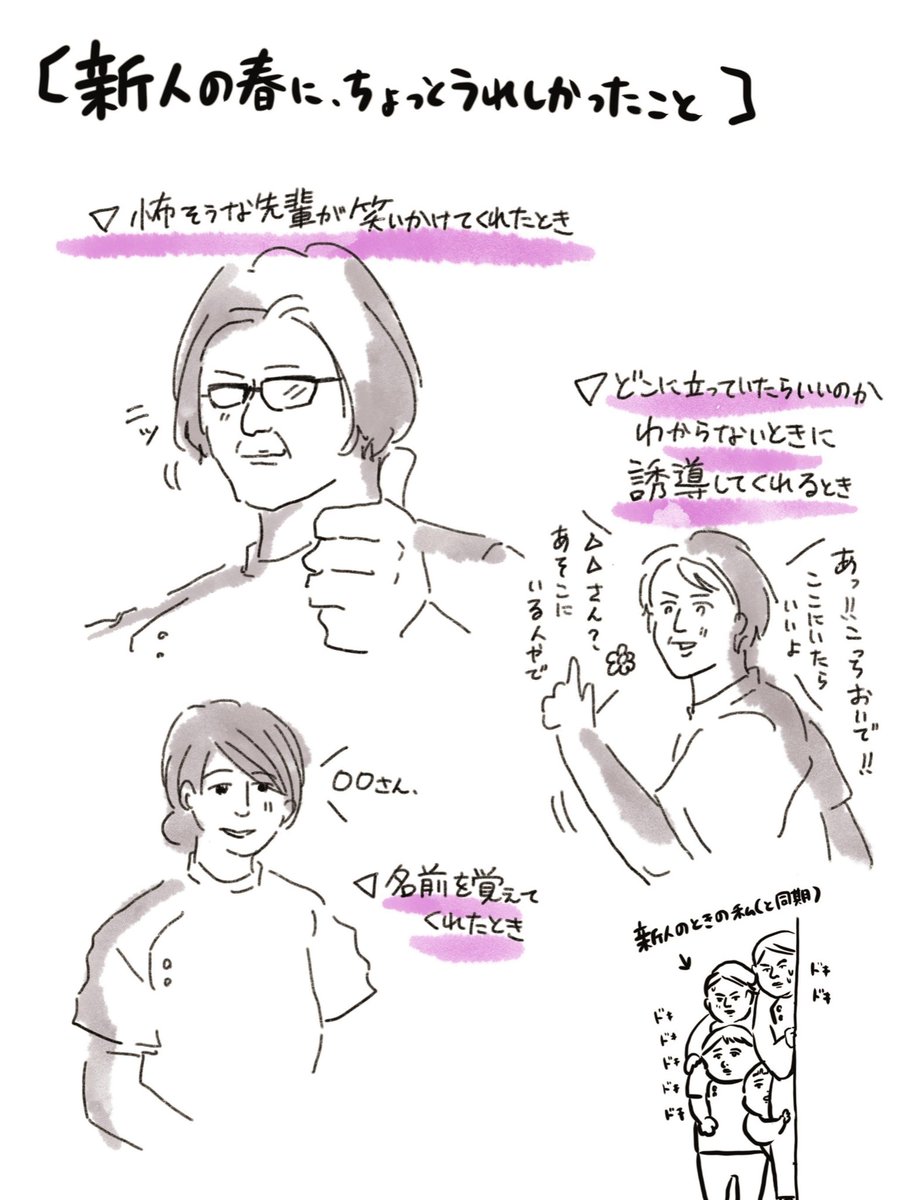 [新人の春に、ちょっとうれしかったこと]
▽怖そうな先輩が笑いかけてくれたとき
ニッ
▽どこに立っていたらいいのか
わからないときに
誘導してくれるとき
あっ!!こっちおいで!!
ここにいたら
いいよ
△△さん?
あそこに
いる人やで
〇〇さん、
◁名前を覚えて
くれたとき
新人のときの私(と同期)
ドキ
ドキ
ドキ
ドキ
ドキ
ドキ
ドキ